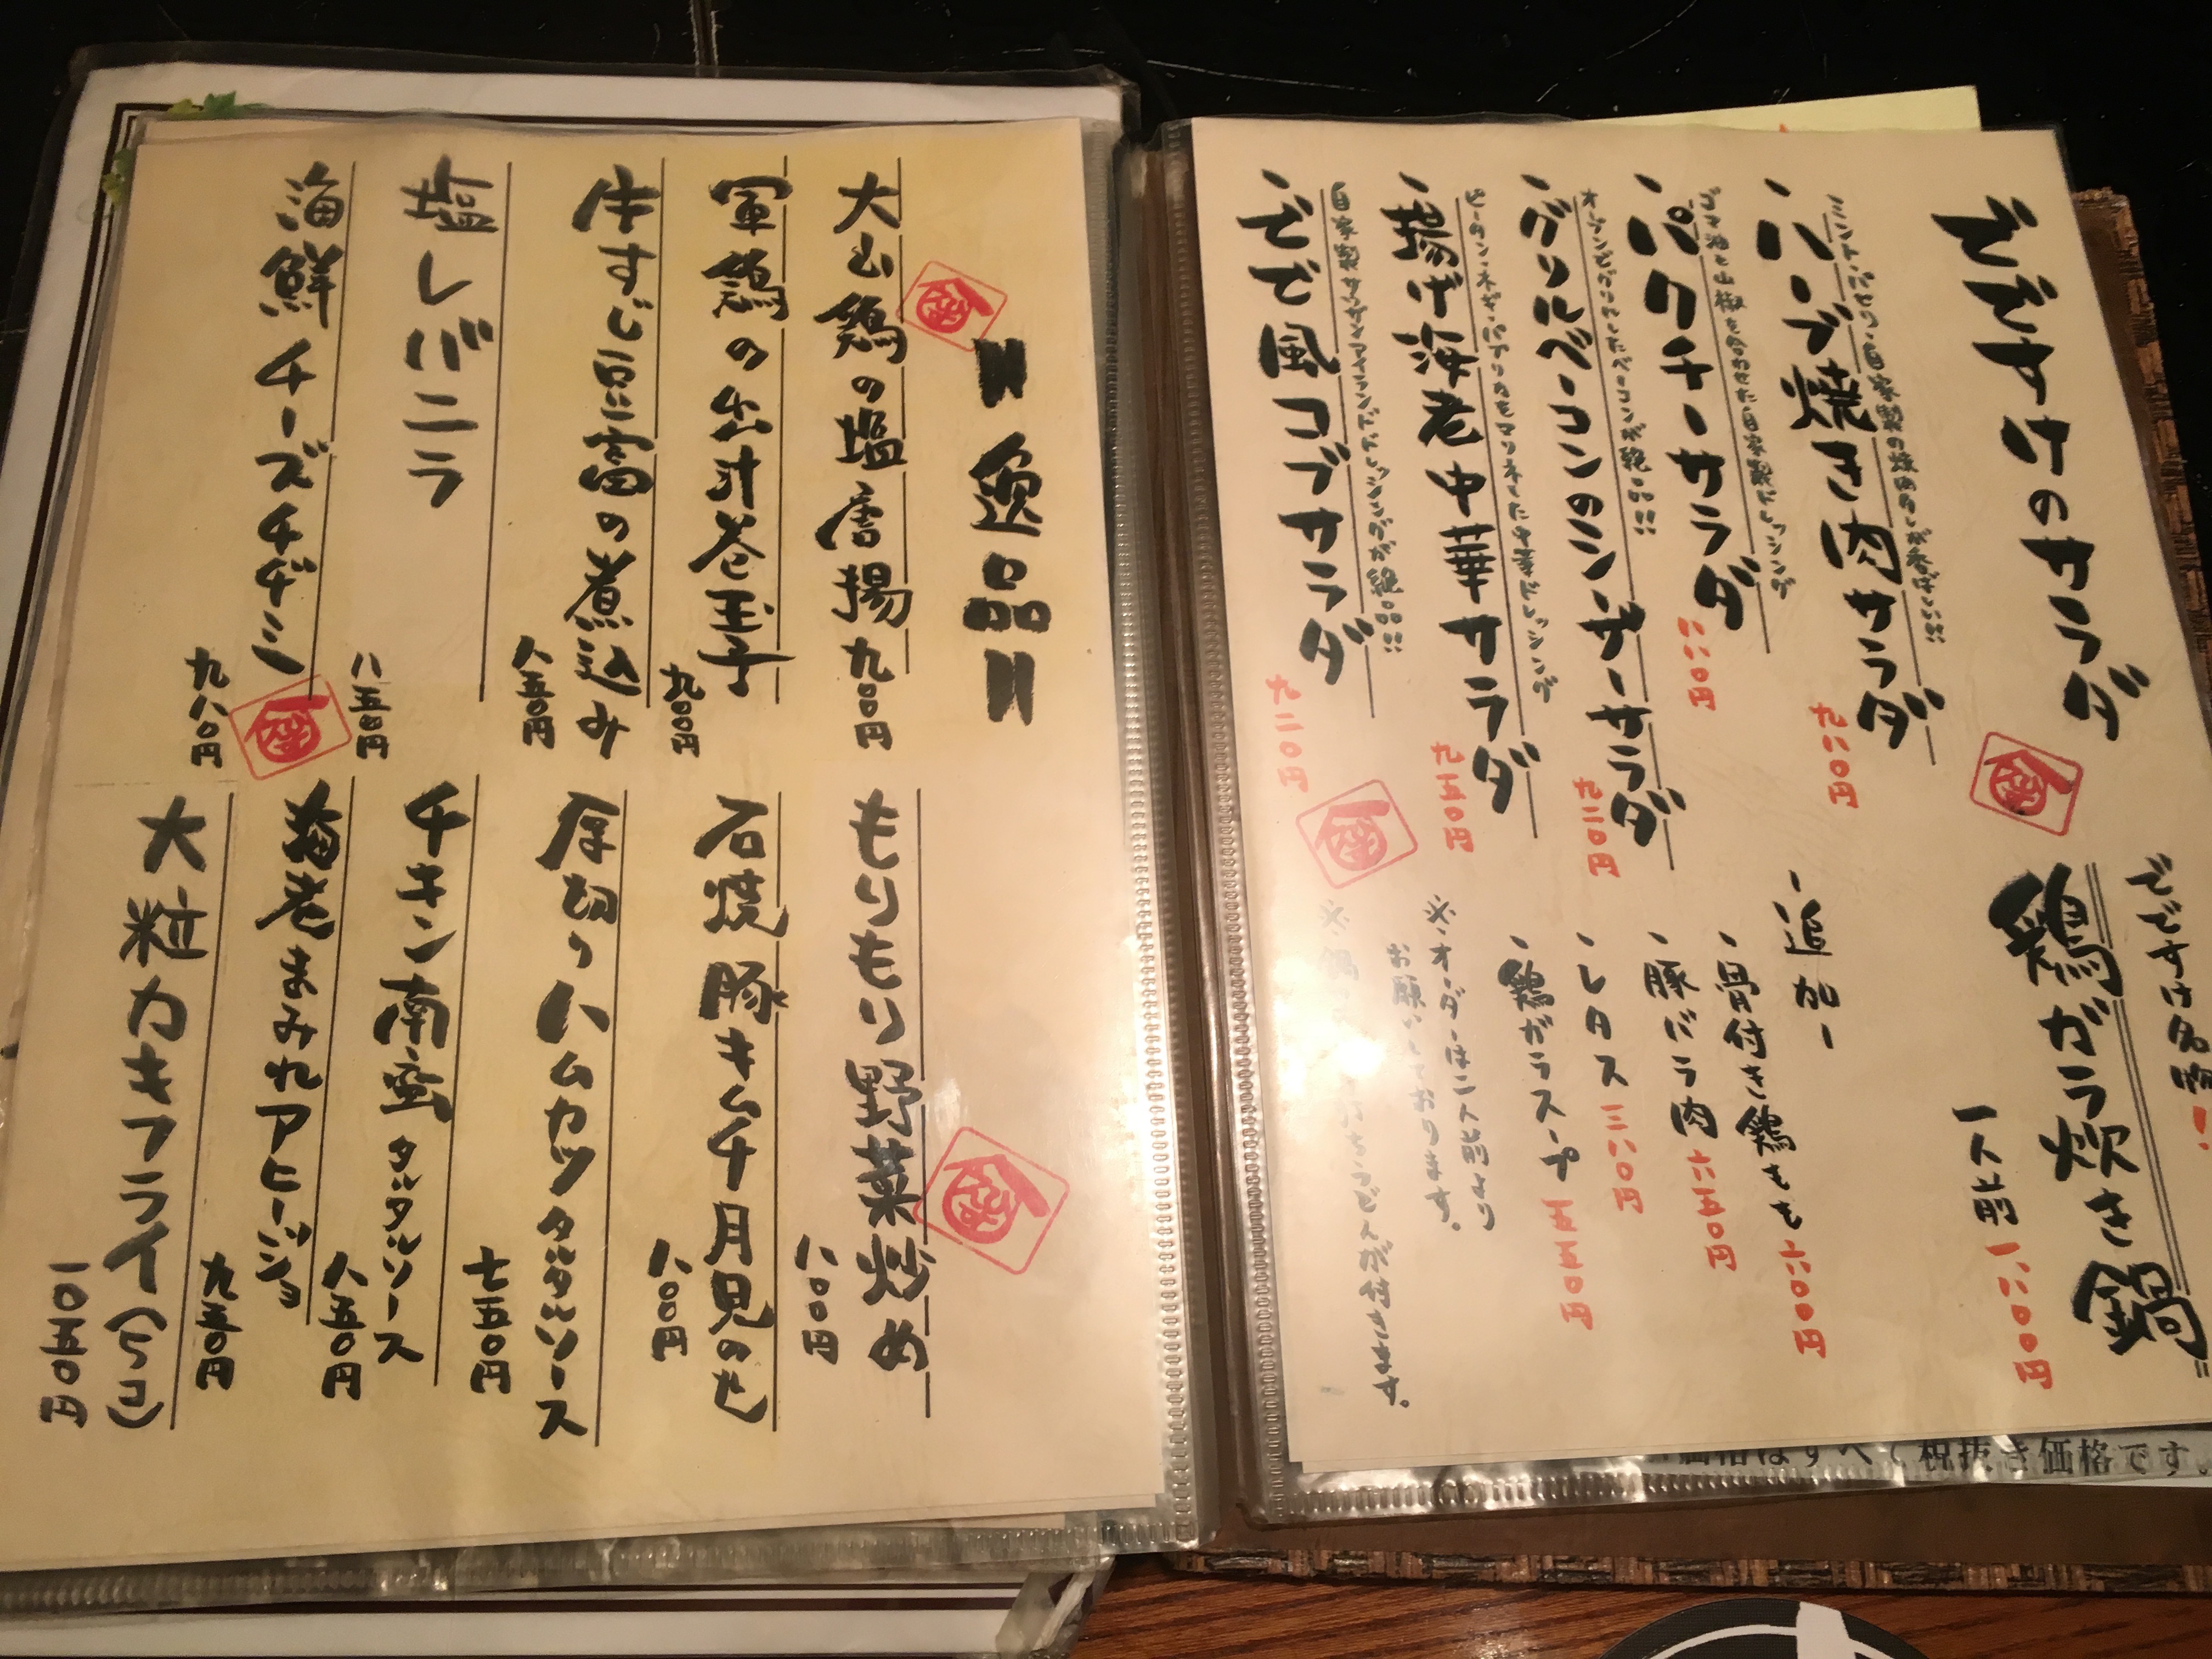 でですけのサラダ
・ハーブ焼き肉サラダ
・パクチーサラダ
八八〇円
オーブンでグリルしたベーコンが絶品!!
・グリルベーコンのシーザーサラダ
九二〇円
・揚げ海老中華サラダ
九五〇円
自家製サウザンアイランドドレッシングが絶品!!
・でで風コブサラダ
九二〇円
ででですけ名物!!
鶏ガラ炊き鍋
一人前 一八〇〇円
ー追加ー
・骨付き鶏もも 六〇〇円
・豚バラ肉 六五〇円
・レタス 三八〇円
・鶏ガラスープ 五五〇円
※オーダーは二人前より
お願いしております。
うどんが付きます。
価格はすべて税抜き価格です。
逸品
大山鶏の塩唐揚 九〇〇円
軍鶏の出汁巻玉子
九〇〇円
牛すじ豆富の煮込み
八五〇円
塩レバニラ
八五〇円
海鮮チーズチヂミ
九八〇円
もりもり野菜炒め
八〇〇円
石焼豚キムチ月見のせ
八〇〇円
厚切りハムカツタルタルソース
七五〇円
チキン南蛮タルタルソース
八五〇円
海老まみれアヒージョ
九五〇円
大粒カキフライ(5コ)
一〇五〇円